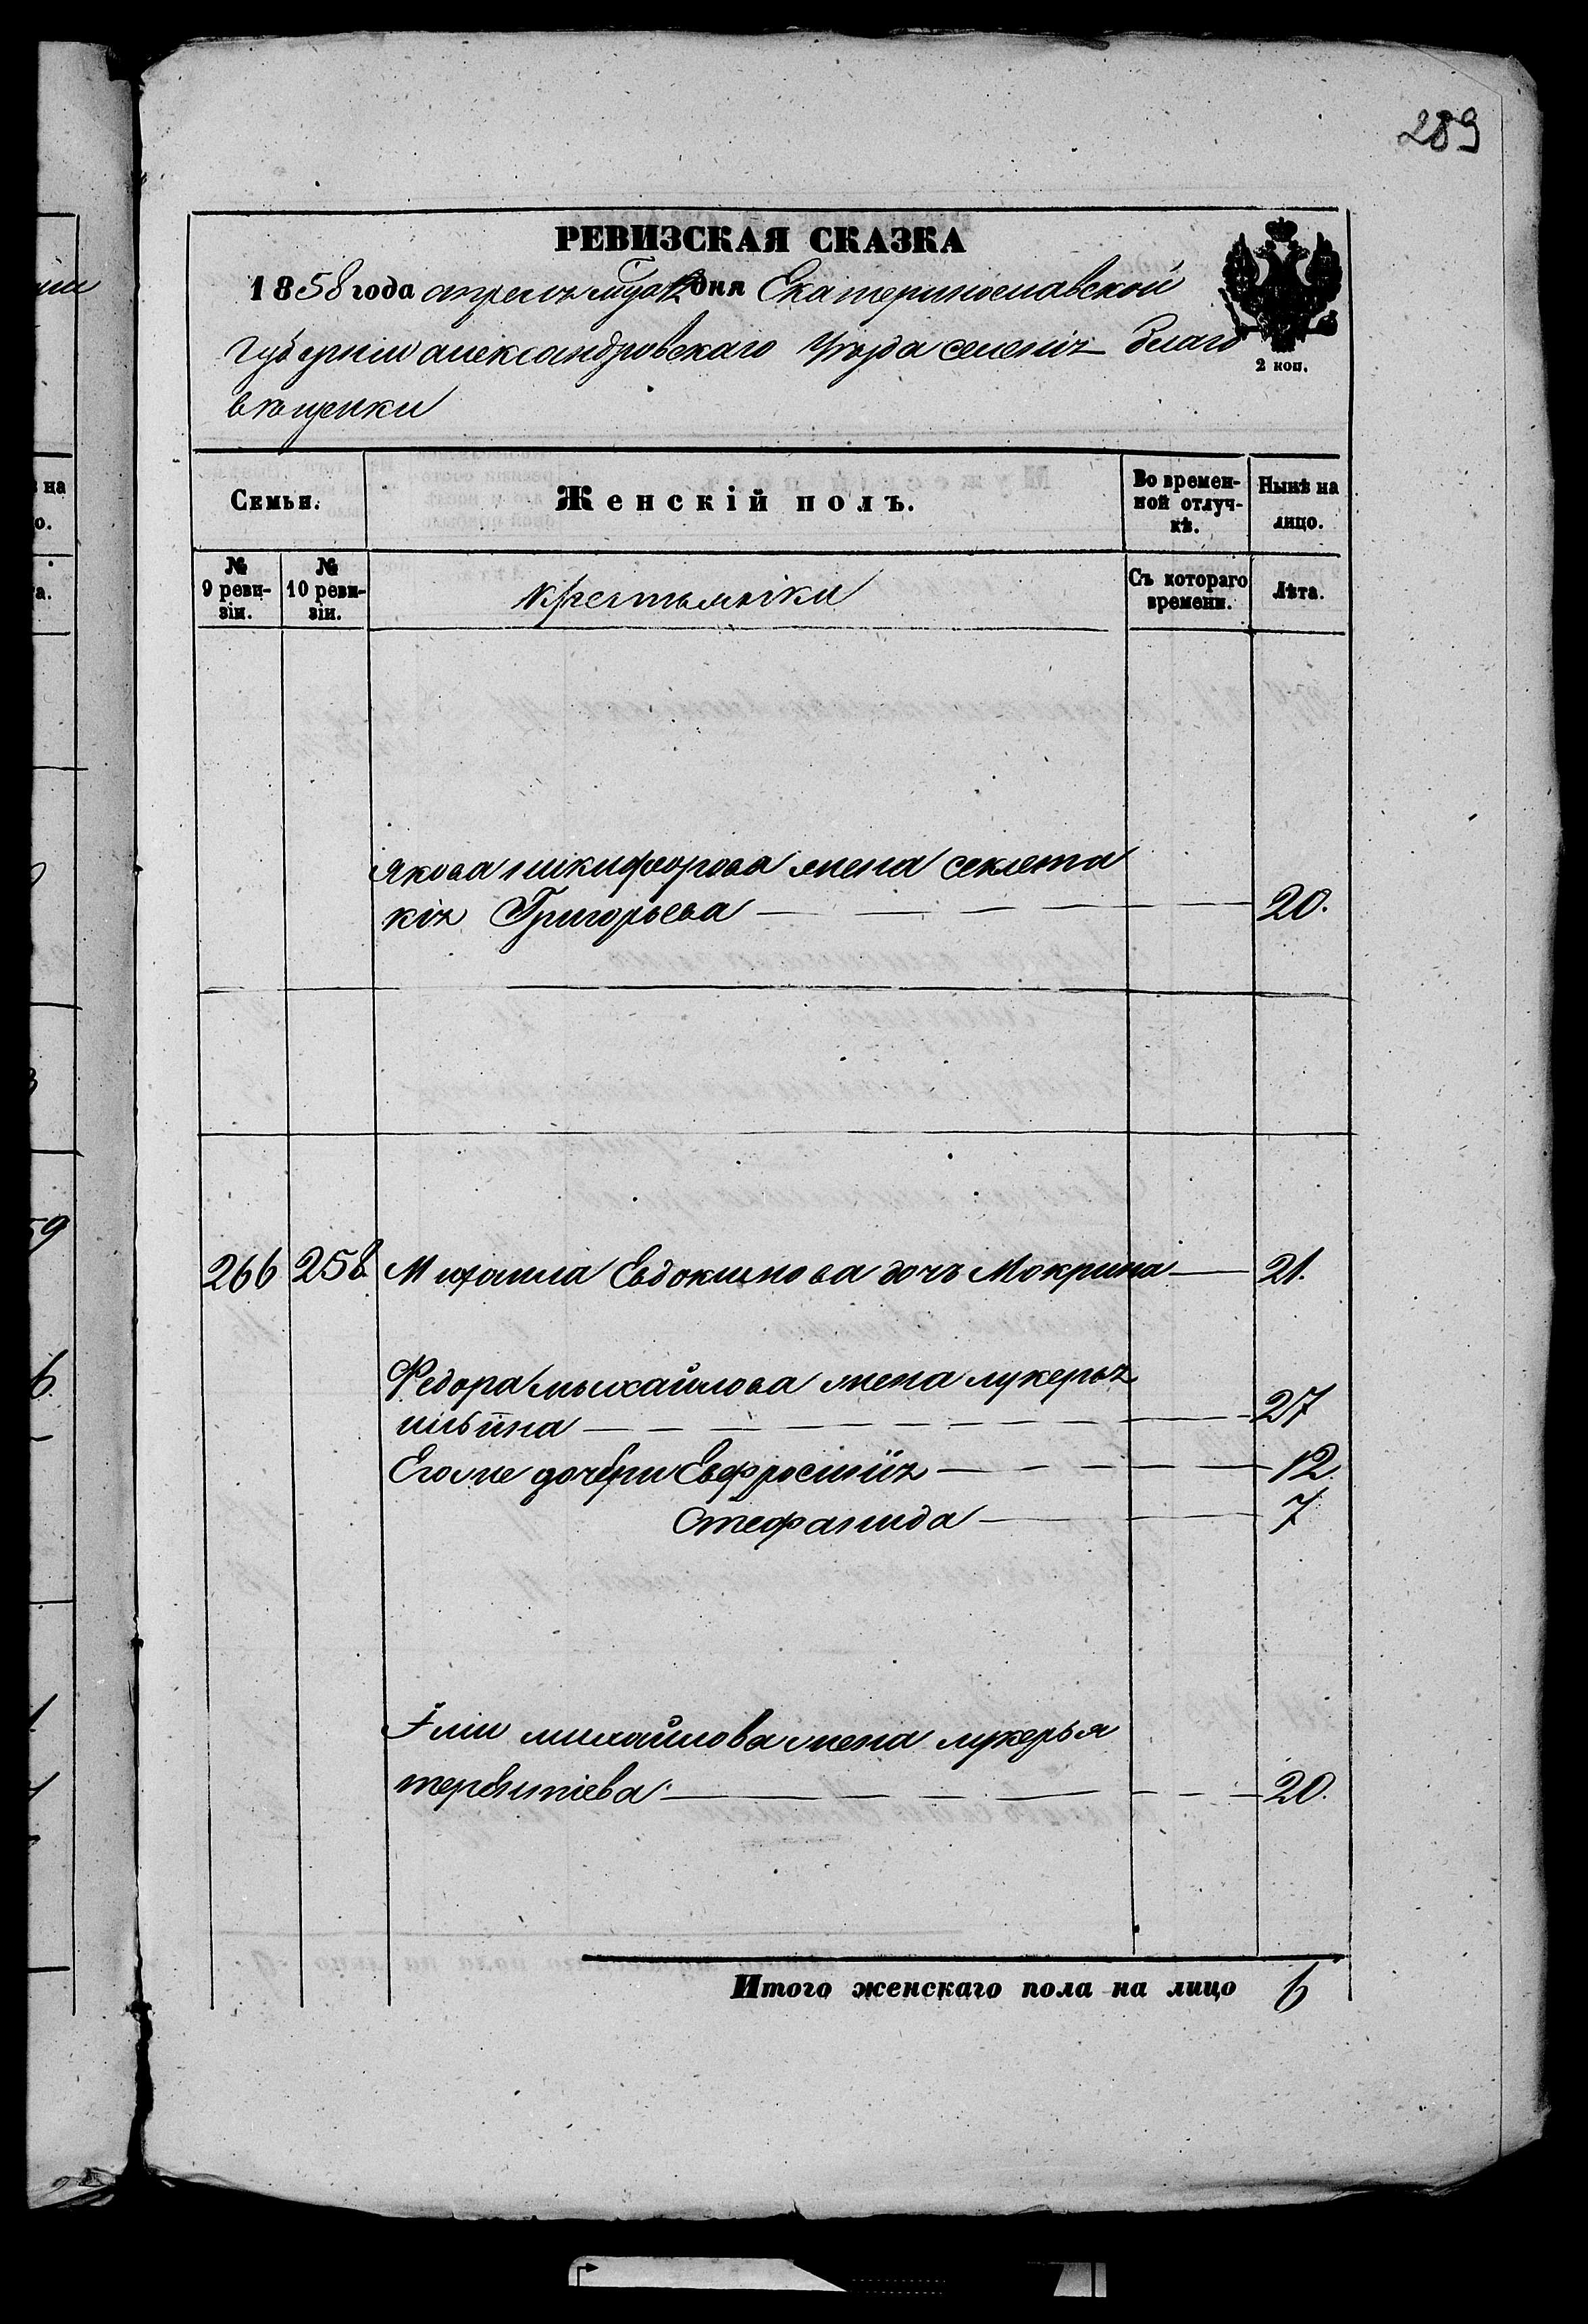 289
РЕВИЗСКАЯ СКАЗКА
1858 года апреля мца 12 дня Екатеринославской
Губерніи александровскаго Уѣзда селенія Благо
вѣщенки
2 коп.
Семьи.
Женскій полъ.
Во времен-
ной отлуч-
кѣ.
Нынѣ на
лицо.
№
9 реви-
зіи.
№
10 реви-
зіи.
крестьянки
Съ котораго
времени.
Лѣта.
Якова никифорова жена секлета
кія Григорьева 20.
266 258 Михаила Евдокимова дочь Мокрина 21.
Федора мыхайлова жена лукерья
ильина 27
Его же дочери Евфросинія 12.
Стефанида 7
Іліи михайлова жена лукерья
терентіева 20.
Итого женскаго пола на лицо 6